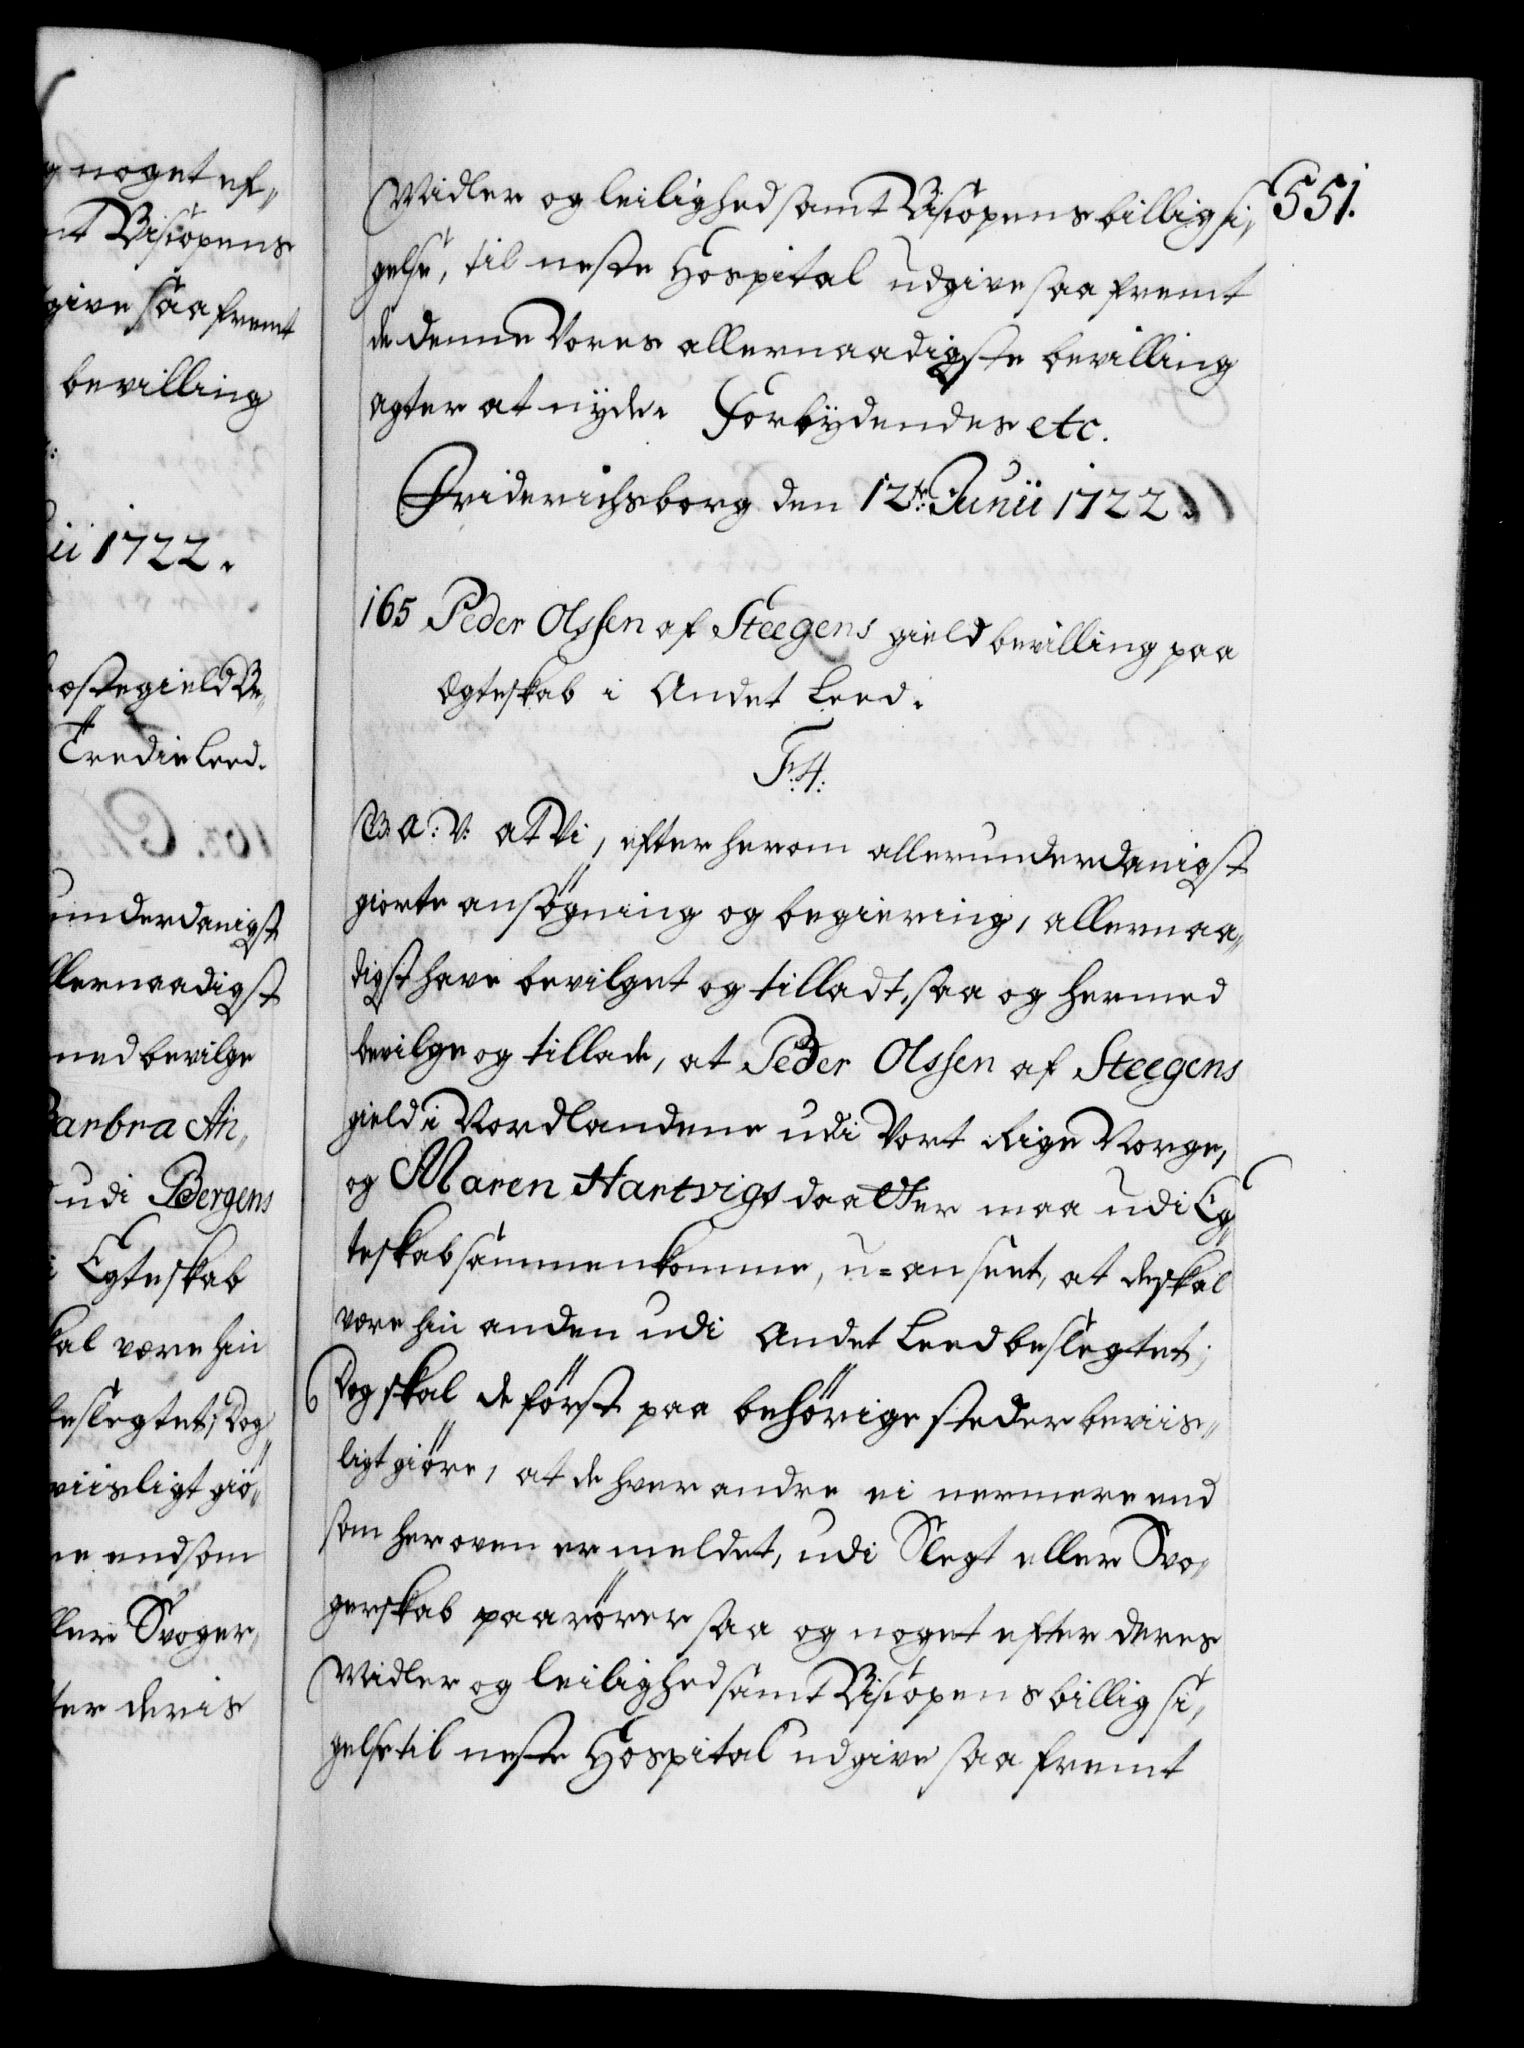 g noget ef„
nt Biscopens
give saafremt
bevilling
ii 1722.
østegield Be„
Tredie Leed.
underdanigst
llernaadigst
med bevilge
Barbra An„
udi Bergens
i Egteskab
kal være hin
beslegtet; Dog
viisligt giö„
re end som
ller Svoger„
ter deris
551.
Midler og leilighed samt Biscopens billig si„
gelse, til neste Hospital udgive saa fremt
de denne Vores allernaadigste bevilling
agter at nyde. Forbydendes etc.
Friderichsborg den 12te Junii 1722.
165 Peder Olssen af Steegens gield bevilling paa
Egteskab i Andet Leed.
F. 4:
B: a: V: at Vi, efter herom allerunderdanigst
giorte ansögning og begiering, allernaa„
digst have bevilget og tilladt, saa og hermed
bevilge og tillade, at Peder Olssen af Steegens
gield i Nordlandene udi Vort Rige Norge,
og Maren Hartvigsdaatter maa udi Eg„
teskab sammenkomme, u=anseet, at de skal
være hin anden udi Andet Leed beslegtet;
Dog skal de först paa behörige steder beviis„
ligt giöre, at de hver andre ei nermere end
som her oven er meldet, udi Slegt eller Svo„
gerskab paarörer saa og noget efter deres
Midler og leilighed samt Biscopens billig si„
gelse til neste Hospital udgive saa fremt